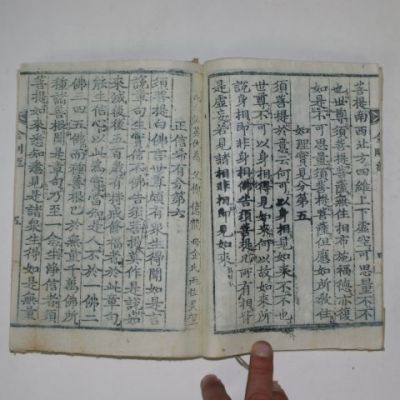 菩提南西北方四維上下虛空可思量不不
也世尊須菩提菩薩無住相布施福德亦復
如是不可思量須菩提菩薩但應如所敎住
如理實見分第五
須菩提於意云何可以身相見如來不不也
世尊不可以身相得見如來何以故如來所
說身相即非身相佛告須菩提凡所有相皆
是虛妄若見諸相非相即見如來
正信希有分第六
須菩提白佛言世尊頗有衆生得聞如是言
說章句生實信不佛告須菩提莫作是說如
來滅後後五百歲有持戒修福者於此章句
能生信心以此爲實當知是人不於一佛二
佛三四五佛而種善根已於無量千萬佛所
種諸善根聞是章句乃至一念生淨信者須
菩提如來悉知悉見是諸衆生得如是無量